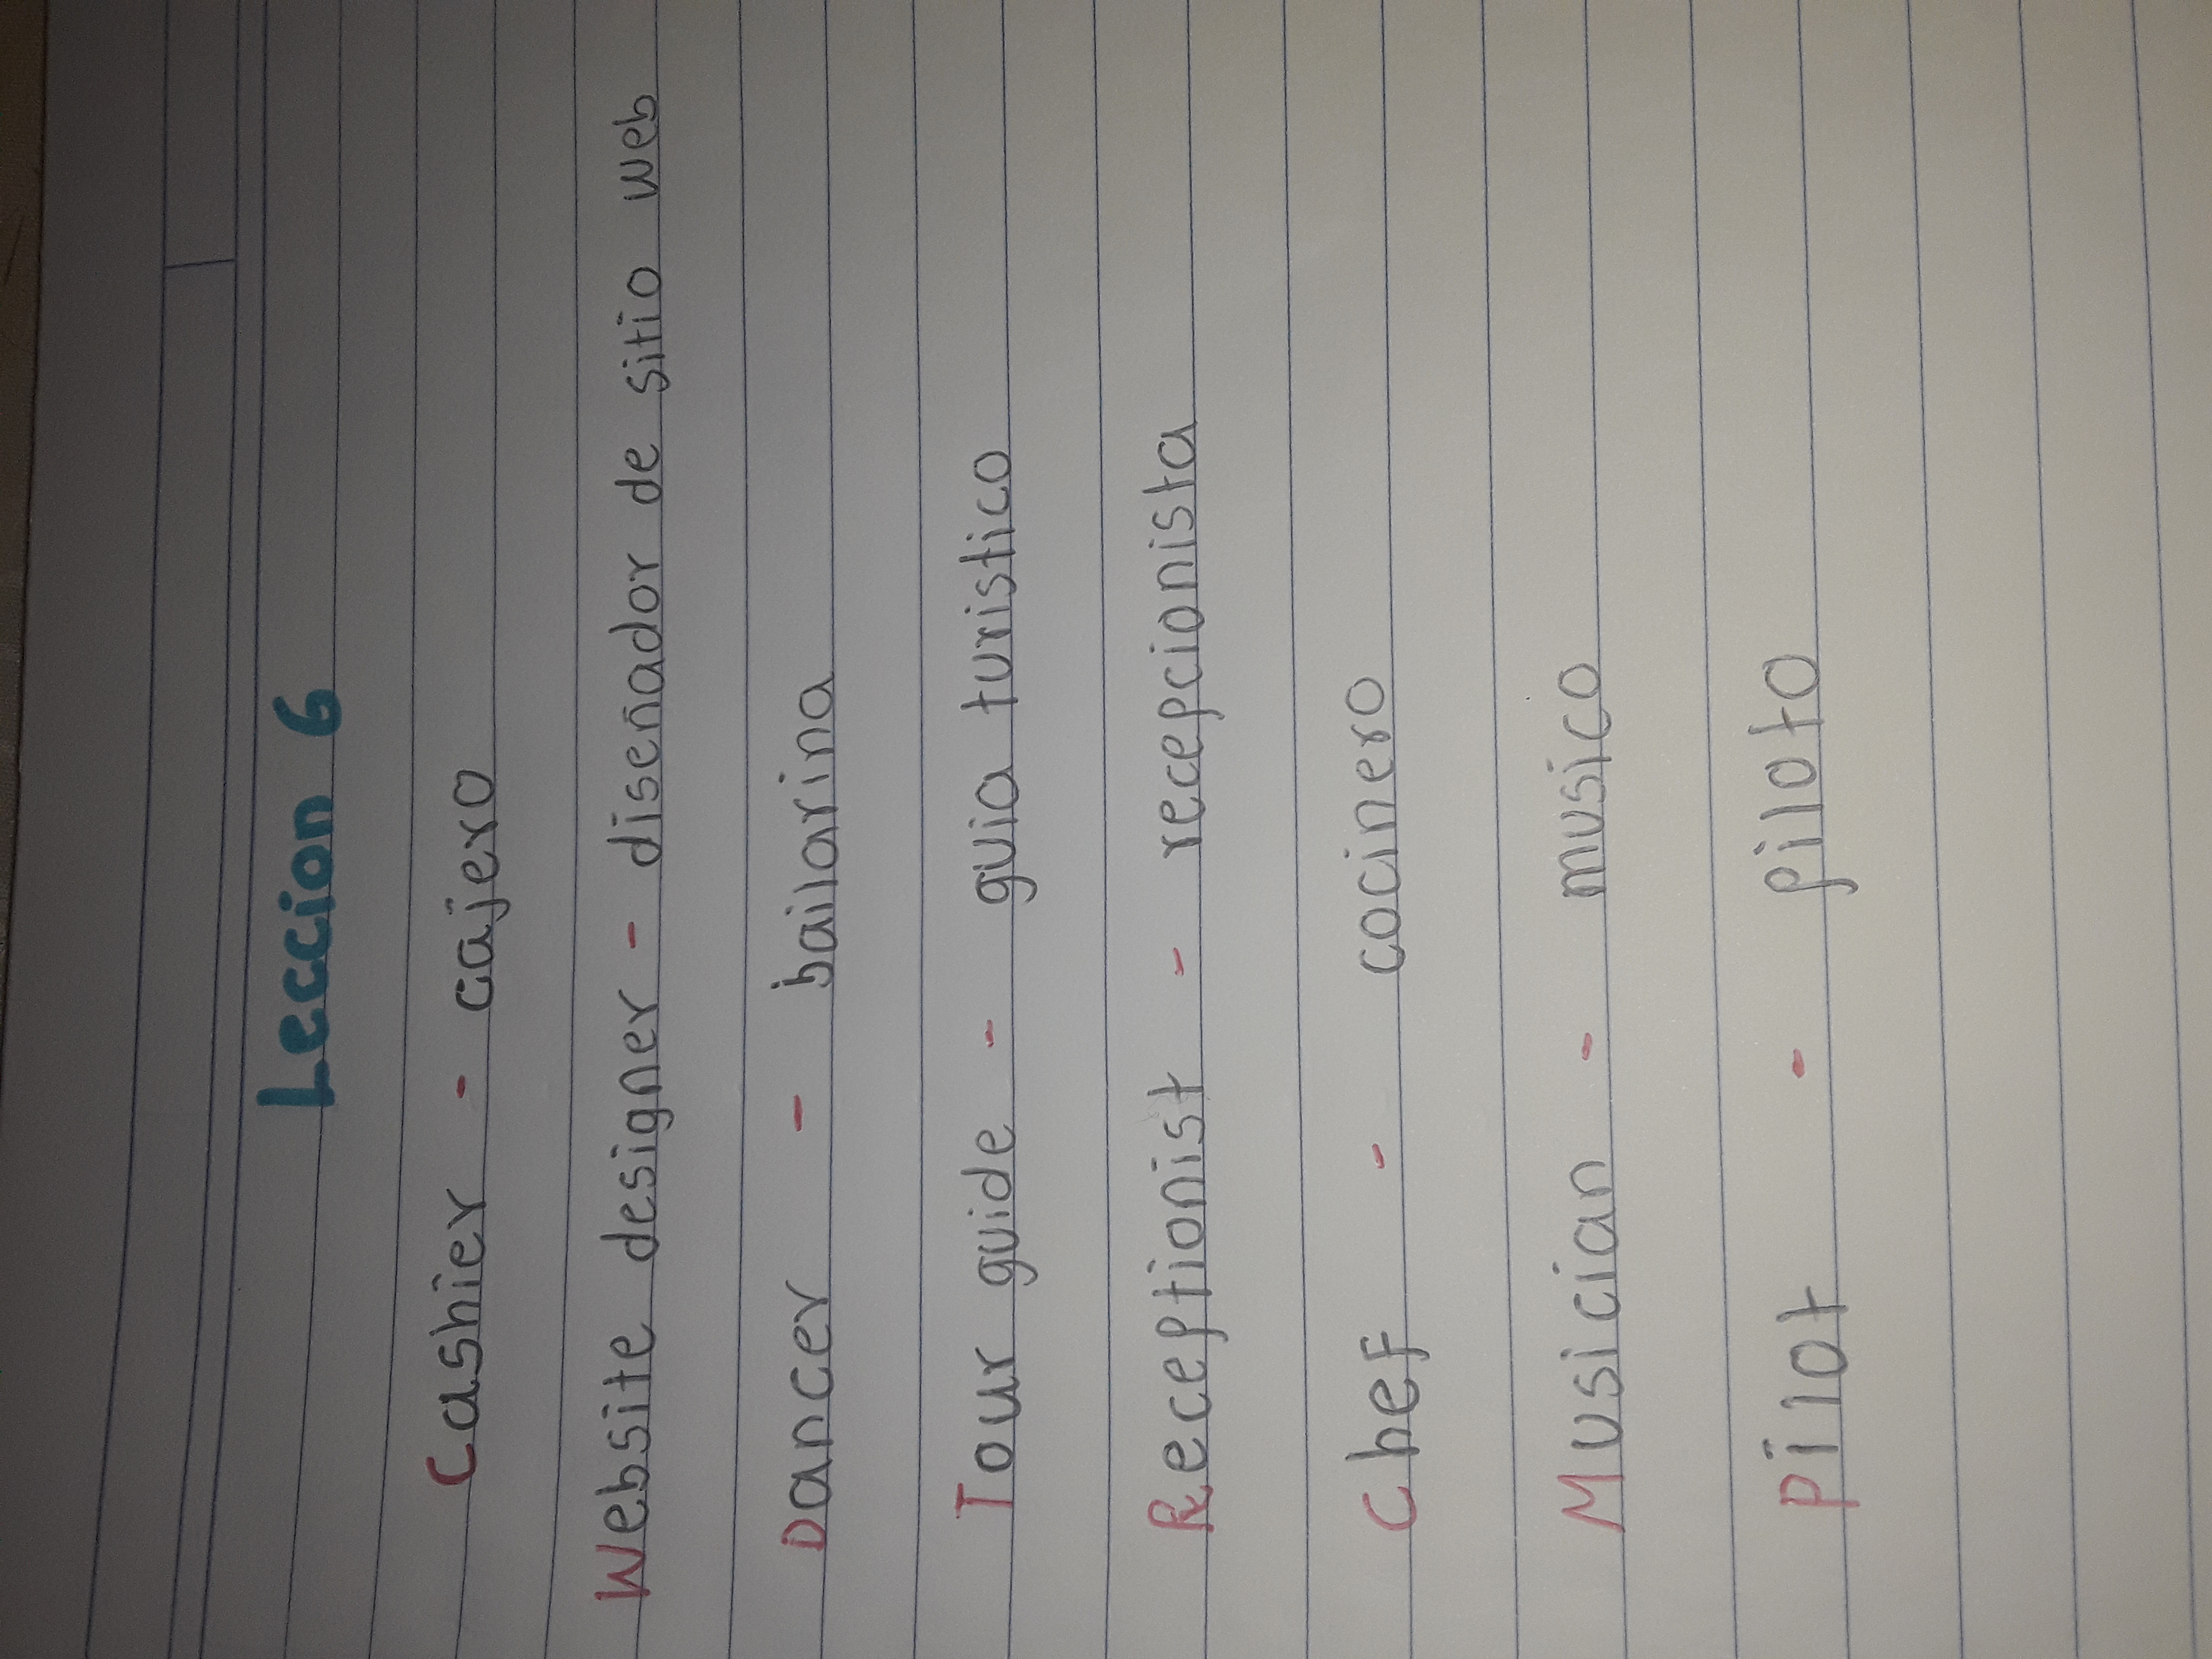 Leccion 6
Cashier - cajero
Website designer - diseñador de sitio web
Dancer - bailarina
Tour guide - guia turistico
Receptionist - recepcionista
Chef - cocinero
Musician - musico
Pilot - piloto